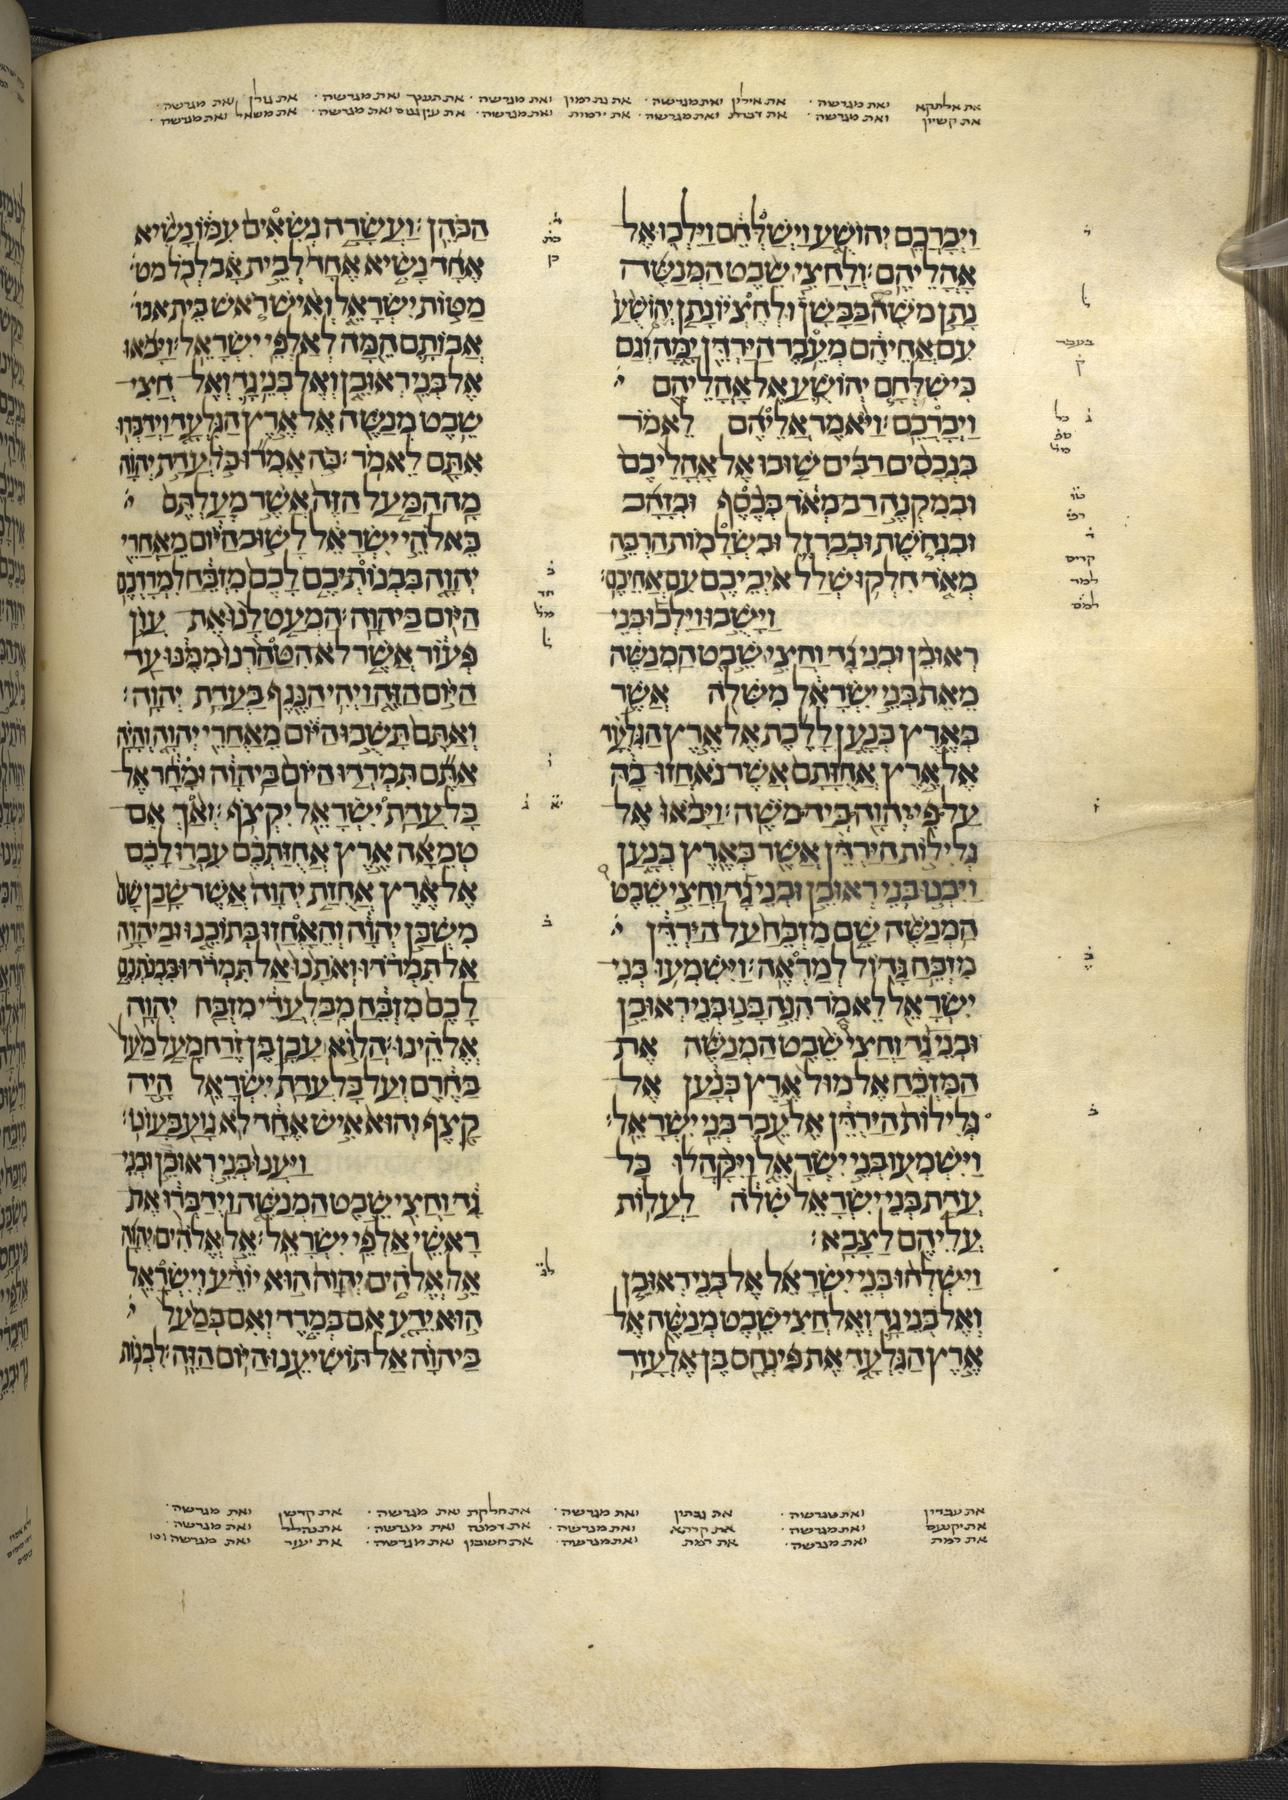 את אלתקא ואת מגרשה · את אילון ואת מגרשה · את גת רמון ואת מגרשה · את תענך ואת מגרשה · את גולן ואת מגרשה ·
את קשיון ואת מגרשה · את דברת ואת מגרשה · את ירמות ואת מגרשה · את עין גנים ואת מגרשה · את משאל ואת מגרשה ·
וַיְבָרְכֵם יְהוֹשֻׁעַ וַיְשַׁלְּחֵם וַיֵּלְכוּ אֶל
אָהֳלֵיהֶם׃ וְלַחֲצִי שֵׁבֶט הַמְנַשֶּׁה
נָתַן מֹשֶׁה בַּבָּשָׁן וּלְחֶצְיוֹ נָתַן יְהוֹשֻׁעַ
עִם אֲחֵיהֶם מֵעֵבֶר הַיַּרְדֵּן יָמָּה וְגַם
כִּי שִׁלְּחָם יְהוֹשֻׁעַ אֶל אָהֳלֵיהֶם
וַיְבָרֲכֵם׃ וַיֹּאמֶר אֲלֵיהֶם לֵאמֹר
בִּנְכָסִים רַבִּים שׁוּבוּ אֶל אָהֳלֵיכֶם
וּבְמִקְנֶה רַב מְאֹד בְּכֶסֶף וּבְזָהָב
וּבִנְחֹשֶׁת וּבְבַרְזֶל וּבִשְׂלָמוֹת הַרְבֵּה
מְאֹד חִלְקוּ שְׁלַל אֹיְבֵיכֶם עִם אֲחֵיכֶם׃
וַיָּשֻׁבוּ וַיֵּלְכוּ בְּנֵי
רְאוּבֵן וּבְנֵי גָד וַחֲצִי שֵׁבֶט הַמְנַשֶּׁה
מֵאֵת בְּנֵי יִשְׂרָאֵל מִשִּׁלֹה אֲשֶׁר
בְּאֶרֶץ כְּנָעַן לָלֶכֶת אֶל אֶרֶץ הַגִּלְעָד
אֶל אֶרֶץ אֲחֻזָּתָם אֲשֶׁר נֹאחֲזוּ בָהּ
עַל פִּי יְהוָה בְּיַד מֹשֶׁה׃ וַיָּבֹאוּ אֶל
גְּלִילוֹת הַיַּרְדֵּן אֲשֶׁר בְּאֶרֶץ כְּנָעַן
וַיִּבְנוּ בְנֵי רְאוּבֵן וּבְנֵי גָד וַחֲצִי שֵׁבֶט
הַמְנַשֶּׁה שָׁם מִזְבֵּחַ עַל הַיַּרְדֵּן
מִזְבֵּחַ גָּדוֹל לְמַרְאֶה׃ וַיִּשְׁמְעוּ בְנֵי
יִשְׂרָאֵל לֵאמֹר הִנֵּה בָנוּ בְנֵי רְאוּבֵן
וּבְנֵי גָד וַחֲצִי שֵׁבֶט הַמְנַשֶּׁה אֶת
הַמִּזְבֵּחַ אֶל מוּל אֶרֶץ כְּנַעַן אֶל
גְּלִילוֹת הַיַּרְדֵּן אֶל עֵבֶר בְּנֵי יִשְׂרָאֵל׃
וַיִּשְׁמְעוּ בְּנֵי יִשְׂרָאֵל וַיִּקָּהֲלוּ כָּל
עֲדַת בְּנֵי יִשְׂרָאֵל שִׁלֹה לַעֲלוֹת
עֲלֵיהֶם לַצָּבָא׃
וַיִּשְׁלְחוּ בְנֵי יִשְׂרָאֵל אֶל בְּנֵי רְאוּבֵן
וְאֶל בְּנֵי גָד וְאֶל חֲצִי שֵׁבֶט מְנַשֶּׁה אֶל
אֶרֶץ הַגִּלְעָד אֶת פִּינְחָס בֶּן אֶלְעָזָר
הַכֹּהֵן׃ וַעֲשָׂרָה נְשִׂאִים עִמּוֹ נָשִׂיא
אֶחָד נָשִׂיא אֶחָד לְבֵית אָב לְכֹל מט
מַטּוֹת יִשְׂרָאֵל וְאִישׁ רֹאשׁ בֵּית אבו
אֲבוֹתָם הֵמָּה לְאַלְפֵי יִשְׂרָאֵל׃ וַיָּבֹאוּ
אֶל בְּנֵי רְאוּבֵן וְאֶל בְּנֵי גָד וְאֶל חֲצִי
שֵׁבֶט מְנַשֶּׁה אֶל אֶרֶץ הַגִּלְעָד וַיְדַבְּרוּ
אִתָּם לֵאמֹר׃ כֹּה אָמְרוּ כֹּל עֲדַת יְהוָה
מָה הַמַּעַל הַזֶּה אֲשֶׁר מְעַלְתֶּם
בֵּאלֹהֵי יִשְׂרָאֵל לָשׁוּב הַיּוֹם מֵאַחֲרֵי
יְהוָה בִּבְנוֹתְיכֶם לָכֶם מִזְבֵּחַ לִמְרָדְכֶם
הַיּוֹם בַּיהוָה׃ הַמְעַט לָנוּ אֶת עֲוֹן
פְּעוֹר אֲשֶׁר לֹא הִטַּהַרְנוּ מִמֶּנּוּ עַד
הַיּוֹם הַזֶּה וַיְהִי הַנֶּגֶף בַּעֲדַת יְהוָה׃
וְאַתֶּם תָּשֻׁבוּ הַיּוֹם מֵאַחֲרֵי יְהוָה וְהָיָה
אַתֶּם תִּמְרְדוּ הַיּוֹם בַּיהוָה וּמָחָר אֶל
כָּל עֲדַת יִשְׂרָאֵל יִקְצֹף׃ וְאַךְ אִם
טְמֵאָה אֶרֶץ אֲחֻזַּתְכֶם עִבְרוּ לָכֶם
אֶל אֶרֶץ אֲחֻזַּת יְהוָה אֲשֶׁר שָׁכַן שָׁם
מִשְׁכַּן יְהוָה וְהֵאָחֲזוּ בְּתוֹכֵנוּ וּבַיהוָה
אַל תִּמְרֹדוּ וְאֹתָנוּ אַל תִּמְרֹדוּ בִּבְנֹתְכֶם
לָכֶם מִזְבֵּחַ מִבַּלְעֲדֵי מִזְבַּח יְהוָה
אֱלֹהֵינוּ׃ הֲלוֹא עָכָן בֶּן זֶרַח מָעַל מַעַל
בַּחֵרֶם וְעַל כָּל עֲדַת יִשְׂרָאֵל הָיָה
קָצֶף וְהוּא אִישׁ אֶחָד לֹא גָוַע בַּעֲוֹנוֹ׃
וַיַּעֲנוּ בְּנֵי רְאוּבֵן וּבְנֵי
גָד וַחֲצִי שֵׁבֶט הַמְנַשֶּׁה וַיְדַבְּרוּ אֶת
רָאשֵׁי אַלְפֵי יִשְׂרָאֵל׃ אֵל אֱלֹהִים יְהוָה
אֵל אֱלֹהִים יְהוָה הוּא יוֹדֵעַ וְיִשְׂרָאֵל
הוּא יֵדָע אִם בְּמֶרֶד וְאִם בְּמַעַל
בַּיהוָה אַל תּוֹשִׁיעֵנוּ הַיּוֹם הַזֶּה׃ לִבְנוֹת
את עבדון ואת מגרשה · את גבתון ואת מגרשה · את חלקת ואת מגרשה · את קדשן ואת מגרשה ·
את יקנעם ואת מגרשה · את קרתא ואת מגרשה · את דמנה ואת מגרשה · את נהלל ואת מגרשה ·
את רמת ואת מגרשה · את רמת ואת מגרשה · את חשבון ואת מגרשה · את יעזר ואת מגרשה